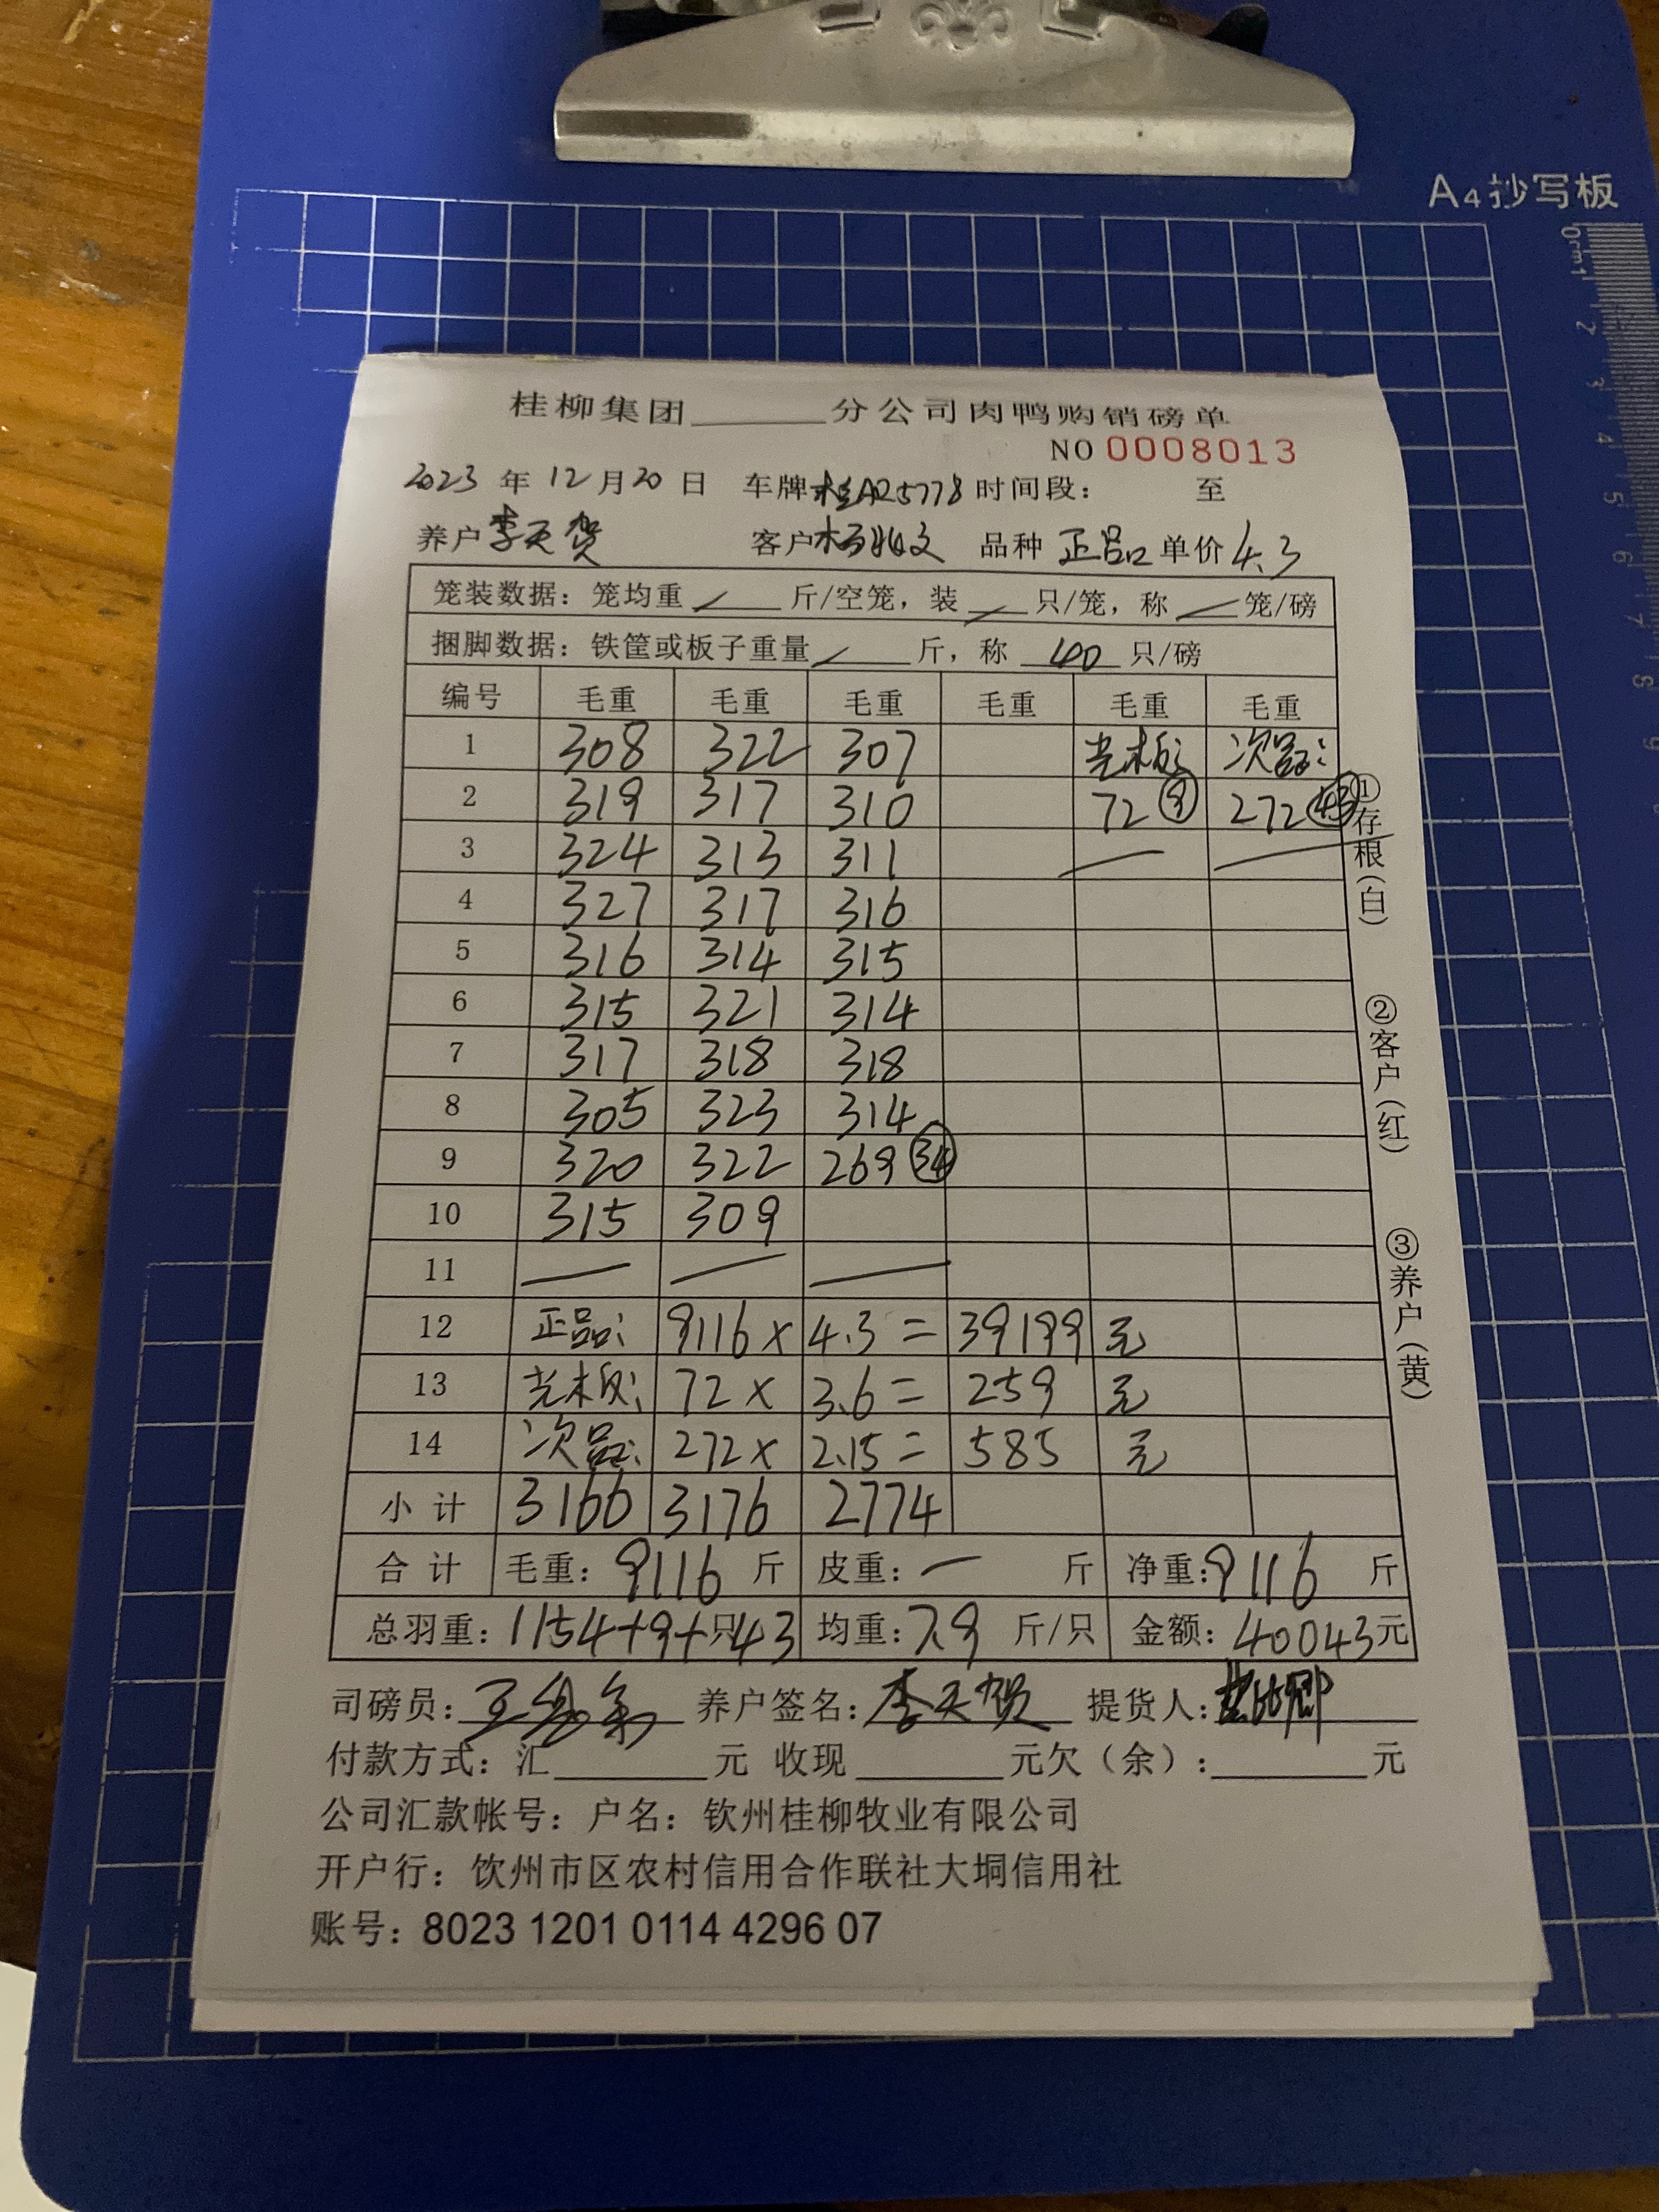 A4抄写板
0cm1 2 3 4 5 6 7 8 9
桂柳集团______分公司肉鸭购销磅单
NO 0008013
2023 年 12 月 20 日 车牌 桂AR5778 时间段： 至
养户 李天贺 客户 杨 文 品种 正品 单价 4.3
笼装数据：笼均重 / 斤/空笼，装 / 只/笼，称 / 笼/磅
捆脚数据：铁筐或板子重量 / 斤，称 40 只/磅
编号 毛重 毛重 毛重 毛重 毛重 毛重
1 308 322 307 光板： 次品：
2 319 317 310 72 ⑨ 272 ㊸
3 324 313 311 — —
4 327 317 316
5 316 314 315
6 315 321 314
7 317 318 318
8 305 323 314
9 320 322 269 ㉞
10 315 309
11 — — —
12 正品： 9116 × 4.3 = 39199 元
13 光板： 72 × 3.6 = 259 元
14 次品： 272 × 2.15 = 585 元
小计 3166 3176 2774
合计 毛重：9116 斤 皮重：— 斤 净重：9116 斤
总羽重：1154+9+只43 均重：7.9 斤/只 金额：40043元
司磅员：王 养户签名：李天贺 提货人：
付款方式：汇______元 收现______元欠（余）：______元
公司汇款帐号：户名：钦州桂柳牧业有限公司
开户行：饮州市区农村信用合作联社大垌信用社
账号：8023 1201 0114 4296 07
①存根（白）
②客户（红）
③养户（黄）